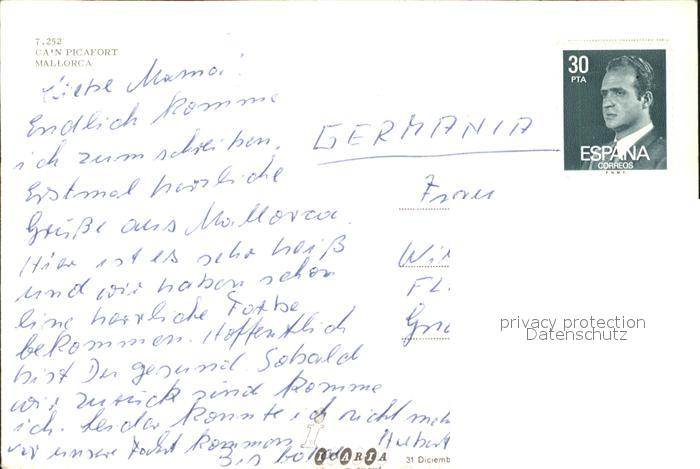 7.252
CA'N PICAFORT
MALLORCA
Liebe Mama!
Endlich komme
ich zum schreiben.
Erstmal herzliche
Grüße aus Mallorca.
Hier ist es sehr heiß
und wir haben schon
eine herrliche Farbe
bekommen. Hoffentlich
bist Du gesund. Sobald
wir zurück sind komme
ich. Leider konnte ich nicht mehr
vor unsere Fahrt kommen
Bis bald Hubert
GERMANIA
Frau
30
PTA
ESPAÑA
CORREOS
F.N.M.T.
privacy protection
Datenschutz
ICARIA
31 Diciemb